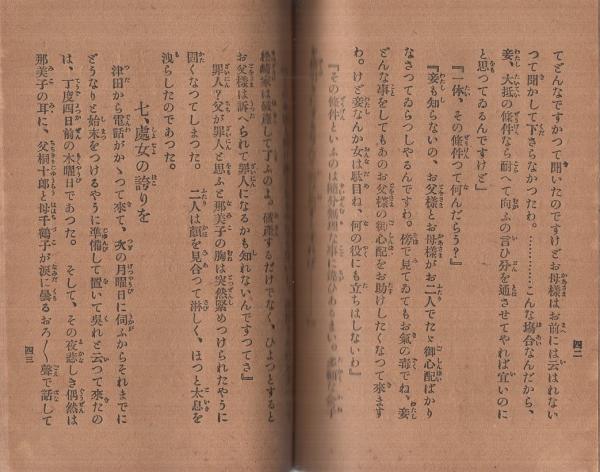 てどんなですかつて聞いたのですけどお母様はお前には云はれない
つて聞かして下さらなかつたわ。…………こんな場合なんだから、
妾、大抵の條件なら耐へて向ふの言ひ分を通させてやれば宜いのに
と思つてゐるんですけど』
『一体、その條件つて何んだらう？』
『妾も知らないの、お父様とお母様がお二人でたゞ御心配ばかり
なさつてゐらつしやるんですわ。傍で見てゐてもお氣の毒でね、妾
どんな事をしてもあのお父様の御心配をお助けしたくなつて來ます
わ。けど妾なんか女は駄目ね、何の役にも立ちはしないわ』
『その條件といふのは隨分無理な事
四二
松崎家は破產して了ふのよ。破產するだけでなく、ひよつとすると
お父樣は訴へられて罪人になるかも知れないんですつてさ』
罪人？父が罪人と思ふと那美子の胸は突然緊めつけられたやうに
固くなつてしまつた。 二人は顏を見合つて淋しく、ほつと太息を
洩らしたのであつた。
七、處女の誇りを
津田から電話がかゝつて來て、次の月曜日に伺ふからそれまでに
どうなりと始末をつけるやうに準備して置いて吳れと云つて來たの
は、丁度四日前の水曜日であつた。 そして、その夜悲しき偶然は
那美子の耳に、父桐十郎と母千鶴子が淚に曇るおろ〱聲で話して
四三